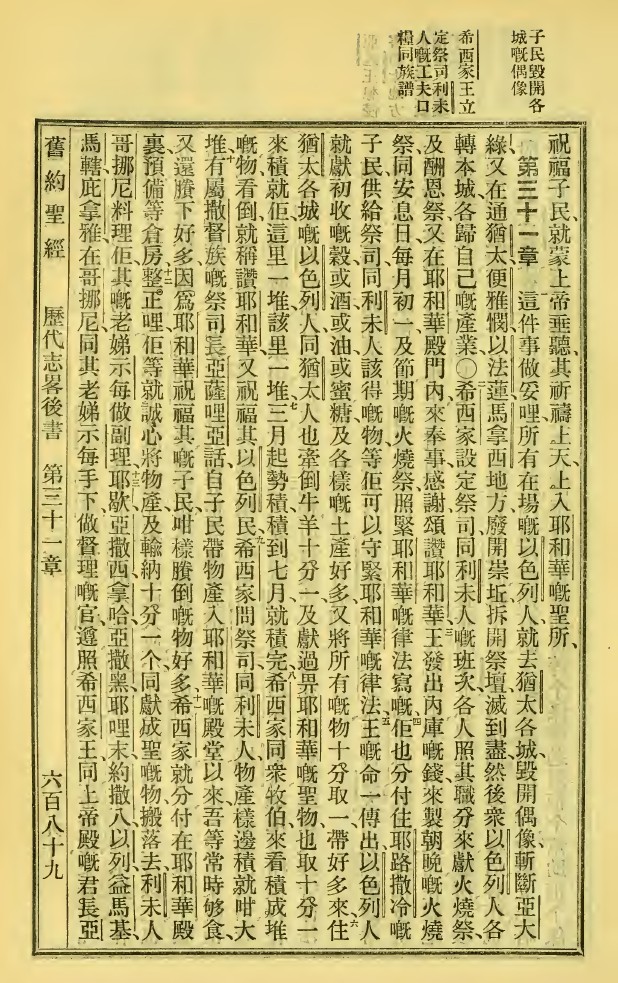 子民毀開各
城嘅偶像
希西家王立
定祭司利未
人嘅工夫口
糧同族譜
祝福子民、就蒙上帝垂聽其祈禱、上天上入耶和華嘅聖所、
第三十一章 這件事做妥哩、所有在場嘅以色列人、就去猶太各城毀開偶像、斬斷亞大
綠、又在通猶太便雅憫以法蓮馬拿西地方、廢開崇坵、拆開祭壇、滅到盡、然後衆以色列人各
轉本城、各歸自己嘅產業〇二希西家設定祭司同利未人嘅班次、各人照其職分來獻火燒祭、
及酬恩祭、又在耶和華殿門內、來奉事感謝頌讚耶和華、三王發出內庫嘅錢、來製朝晚嘅火燒
祭、同安息日每月初一、及節期嘅火燒祭、照緊耶和華嘅律法寫嘅、四佢也分付住耶路撒冷嘅
子民、供給祭司同利未人該得嘅物、等佢可以守緊耶和華嘅律法、五王嘅命一傳出、以色列人
就獻初收嘅穀、或酒、或油、或蜜糖、及各樣嘅土產好多、又將所有嘅物十分取一、帶好多來、六住
猶太各城嘅以色列人同猶太人、也牽倒牛羊十分一、及獻過畀耶和華嘅聖物、也取十分一
來積、就佢這里一堆、該里一堆、七三月起勢積、積到七月就積完、八希西家同衆牧伯來看積成堆
嘅物、看倒、就稱讚耶和華、又祝福其以色列民、九希西家問祭司同利未人、物產樣邊積就咁大
堆、十有屬撒督族嘅祭司長亞薩哩亞話、自子民帶物產入耶和華嘅殿堂以來、吾等常時够食、
又還賸下好多、因爲耶和華祝福其嘅子民、咁樣賸倒嘅物好多、十一希西家就分付在耶和華殿
裏預備等倉房、整正哩、十二佢等就誠心將物產及輸納十分一个、同獻成聖嘅物搬落去、利未人
哥挪尼料理佢、其嘅老娣示每做副理、十三耶歇、亞撒西、拿哈、亞撒黑、耶哩末、約撒八、以列、益馬基、
馬轄、庇拿雅、在哥挪尼同其老娣示每手下、做督理嘅官、遵照希西家王、同上帝殿嘅君長亞
舊約聖經 歷代志畧後書 第三十一章 六百八十九